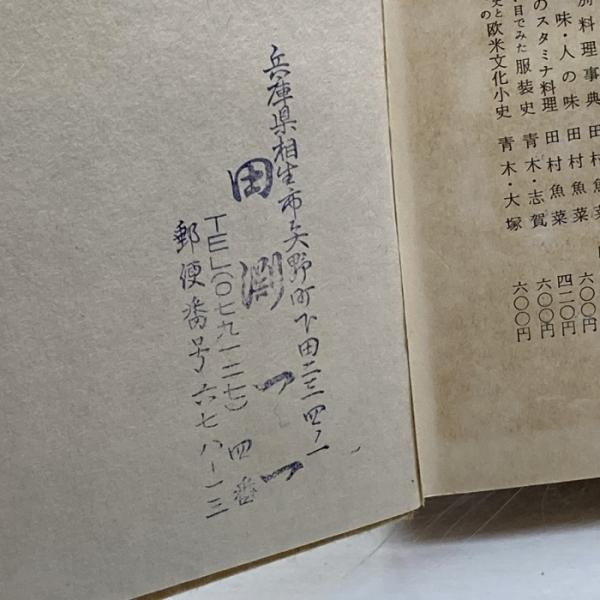 別料理事典
味・人の味 田村魚菜
のスタミナ料理 田村魚菜 四二〇円
目でみた服装史 青木・志賀 六〇〇円
史と
の欧米文化小史 青木・大塚 六〇〇円
兵庫県相生市矢野町下田二三四ノ一
田渕
TEL(〇七九一二七)四番
郵便番号六七八ー一三